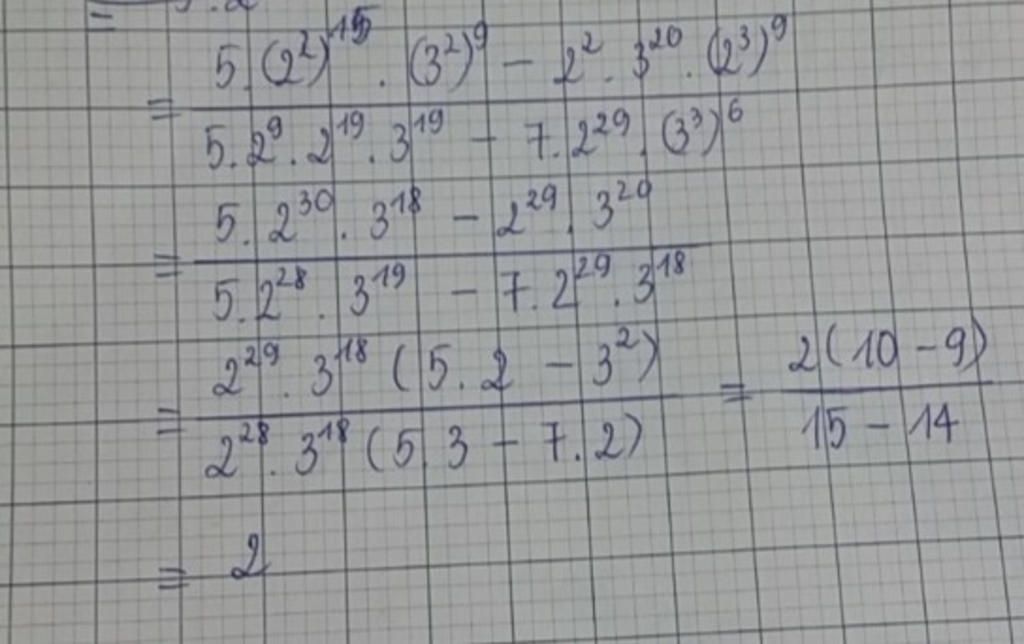 =
= (5.(2²)¹⁵.(3²)⁹ - 2².3²⁰.(2³)⁹) / (5.2⁹.2¹⁹.3¹⁹ - 7.2²⁹.(3³)⁶)
= (5.2³⁰.3¹⁸ - 2²⁹.3²⁰) / (5.2²⁸.3¹⁹ - 7.2²⁹.3¹⁸)
= (2²⁹.3¹⁸(5.2 - 3²)) / (2²⁸.3¹⁸(5.3 - 7.2)) = (2(10-9)) / (15-14)
= 2